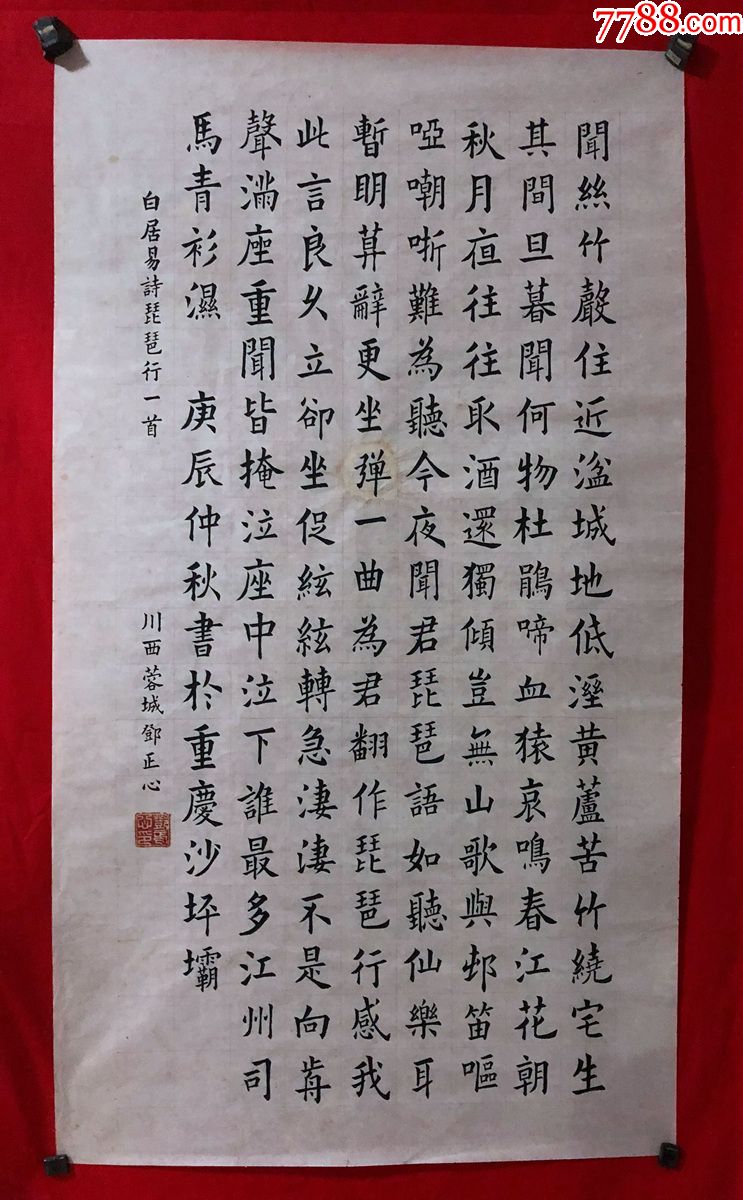 7788.com
聞絲竹聲住近湓城地低溼黃蘆苦竹繞宅生
其間旦暮聞何物杜鵑啼血猿哀鳴春江花朝
秋月夜往往取酒還獨傾豈無山歌與邨笛嘔
啞嘲哳難為聽今夜聞君琵琶語如聽仙樂耳
暫明莫辭更坐弹一曲為君翻作琵琶行感我
此言良久立卻坐促絃絃轉急淒淒不是向歬
聲滿座重聞皆掩泣座中泣下誰最多江州司
馬青衫濕　庚辰仲秋書於重慶沙坪壩
白居易詩琵琶行一首
川西蓉城鄧正心